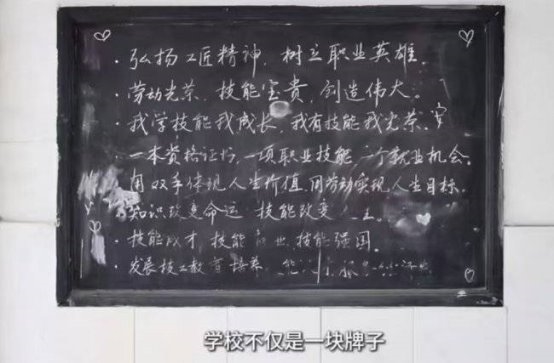 ·弘扬工匠精神，树立职业英雄。
·劳动光荣、技能宝贵、创造伟大。
·我学技能我成长，我有技能我光荣。
·一本资格证书，一项职业技能，一个就业机会。
用双手体现人生价值，用劳动实现人生目标。
·知识改变命运 技能改变人生。
·技能成才 技能 业 技能强国。
·发展技工教育 培养
学校不仅是一块牌子